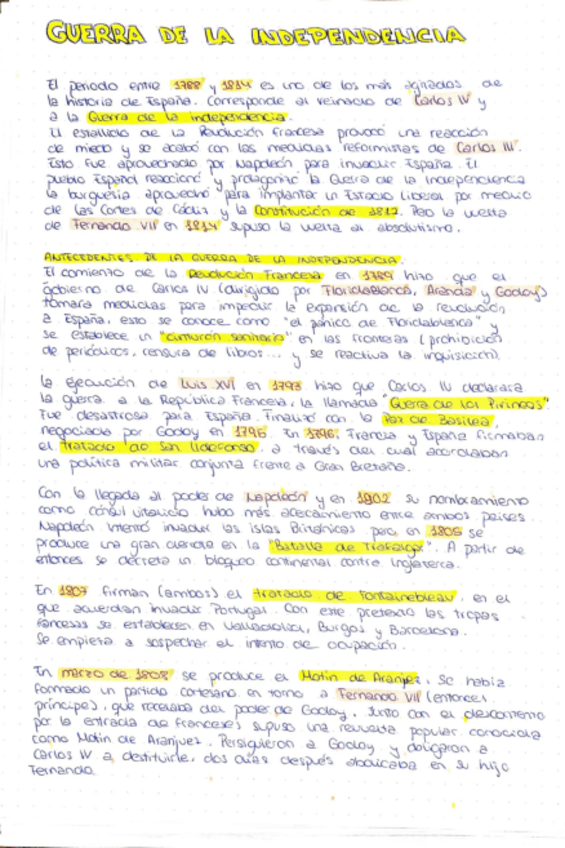 GUERRA DE LA INDEPENDENCIA
El periodo entre 1788 y 1814 es uno de los más agitados de
la historia de España. Corresponde al reinado de Carlos IV y
a la Guerra de la independencia.
El estallido de la Revolución francesa provocó una reacción
de miedo y se acabó con las medidas reformistas de Carlos III.
Esto fue aprovechado por Napoleón para invadir España. El
pueblo Español reaccionó y protagonizó la Guerra de la Independencia
la burguesía aprovechó para implantar un Estado Liberal por medio
de las Cortes de Cádiz y la Constitución de 1812. Pero la vuelta
de Fernando VII en 1814 supuso la vuelta al absolutismo.
ANTECEDENTES DE LA GUERRA DE LA INDEPENDENCIA.
El comienzo de la Revolución Francesa en 1789 hizo que el
gobierno de Carlos IV (dirigido por Floridablanca, Aranda y Godoy)
tomara medidas para impedir la expansión de la revolución
a España, esto se conoce como "el pánico de Floridablanca" y
se establece un "cinturón sanitario" en las fronteras (prohibición
de periódicos, censura de libros... y se reactiva la inquisición).
La ejecución de Luis XVI en 1793 hizo que Carlos IV declarara
la guerra a la República Francesa, la llamada "Guerra de los Pirineos".
Fue desastrosa para España. Finalizó con la Paz de Basilea,
negociada por Godoy en 1795. En 1796, Francia y España firmaban
el Tratado de San Ildefonso, a través del cual acordaban
una política militar conjunta frente a Gran Bretaña.
Con la llegada al poder de Napoleón y en 1802 su nombramiento
como cónsul vitalicio hubo más acercamiento entre ambos países.
Napoleón intentó invadir las islas Británicas pero en 1805 se
produce una gran derrota en la "Batalla de Trafalgar". A partir de
entonces se decreta un bloqueo continental contra Inglaterra.
En 1807 firman (ambos) el tratado de Fontainebleau, en el
que acuerdan invadir Portugal. Con este pretexto las tropas
francesas se establecen en Valladolid, Burgos y Barcelona.
Se empieza a sospechar el intento de ocupación.
En marzo de 1808 se produce el Motín de Aranjez. Se había
formado un partido cortesano en torno a Fernando VII (entonces
príncipe), que recelaba del poder de Godoy. Junto con el descontento
por la entrada de franceses supuso una revuelta popular conocida
como Motín de Aranjuez. Persiguieron a Godoy y obligaron a
Carlos IV a destituirle, dos días después abdicaba en su hijo
Fernando.